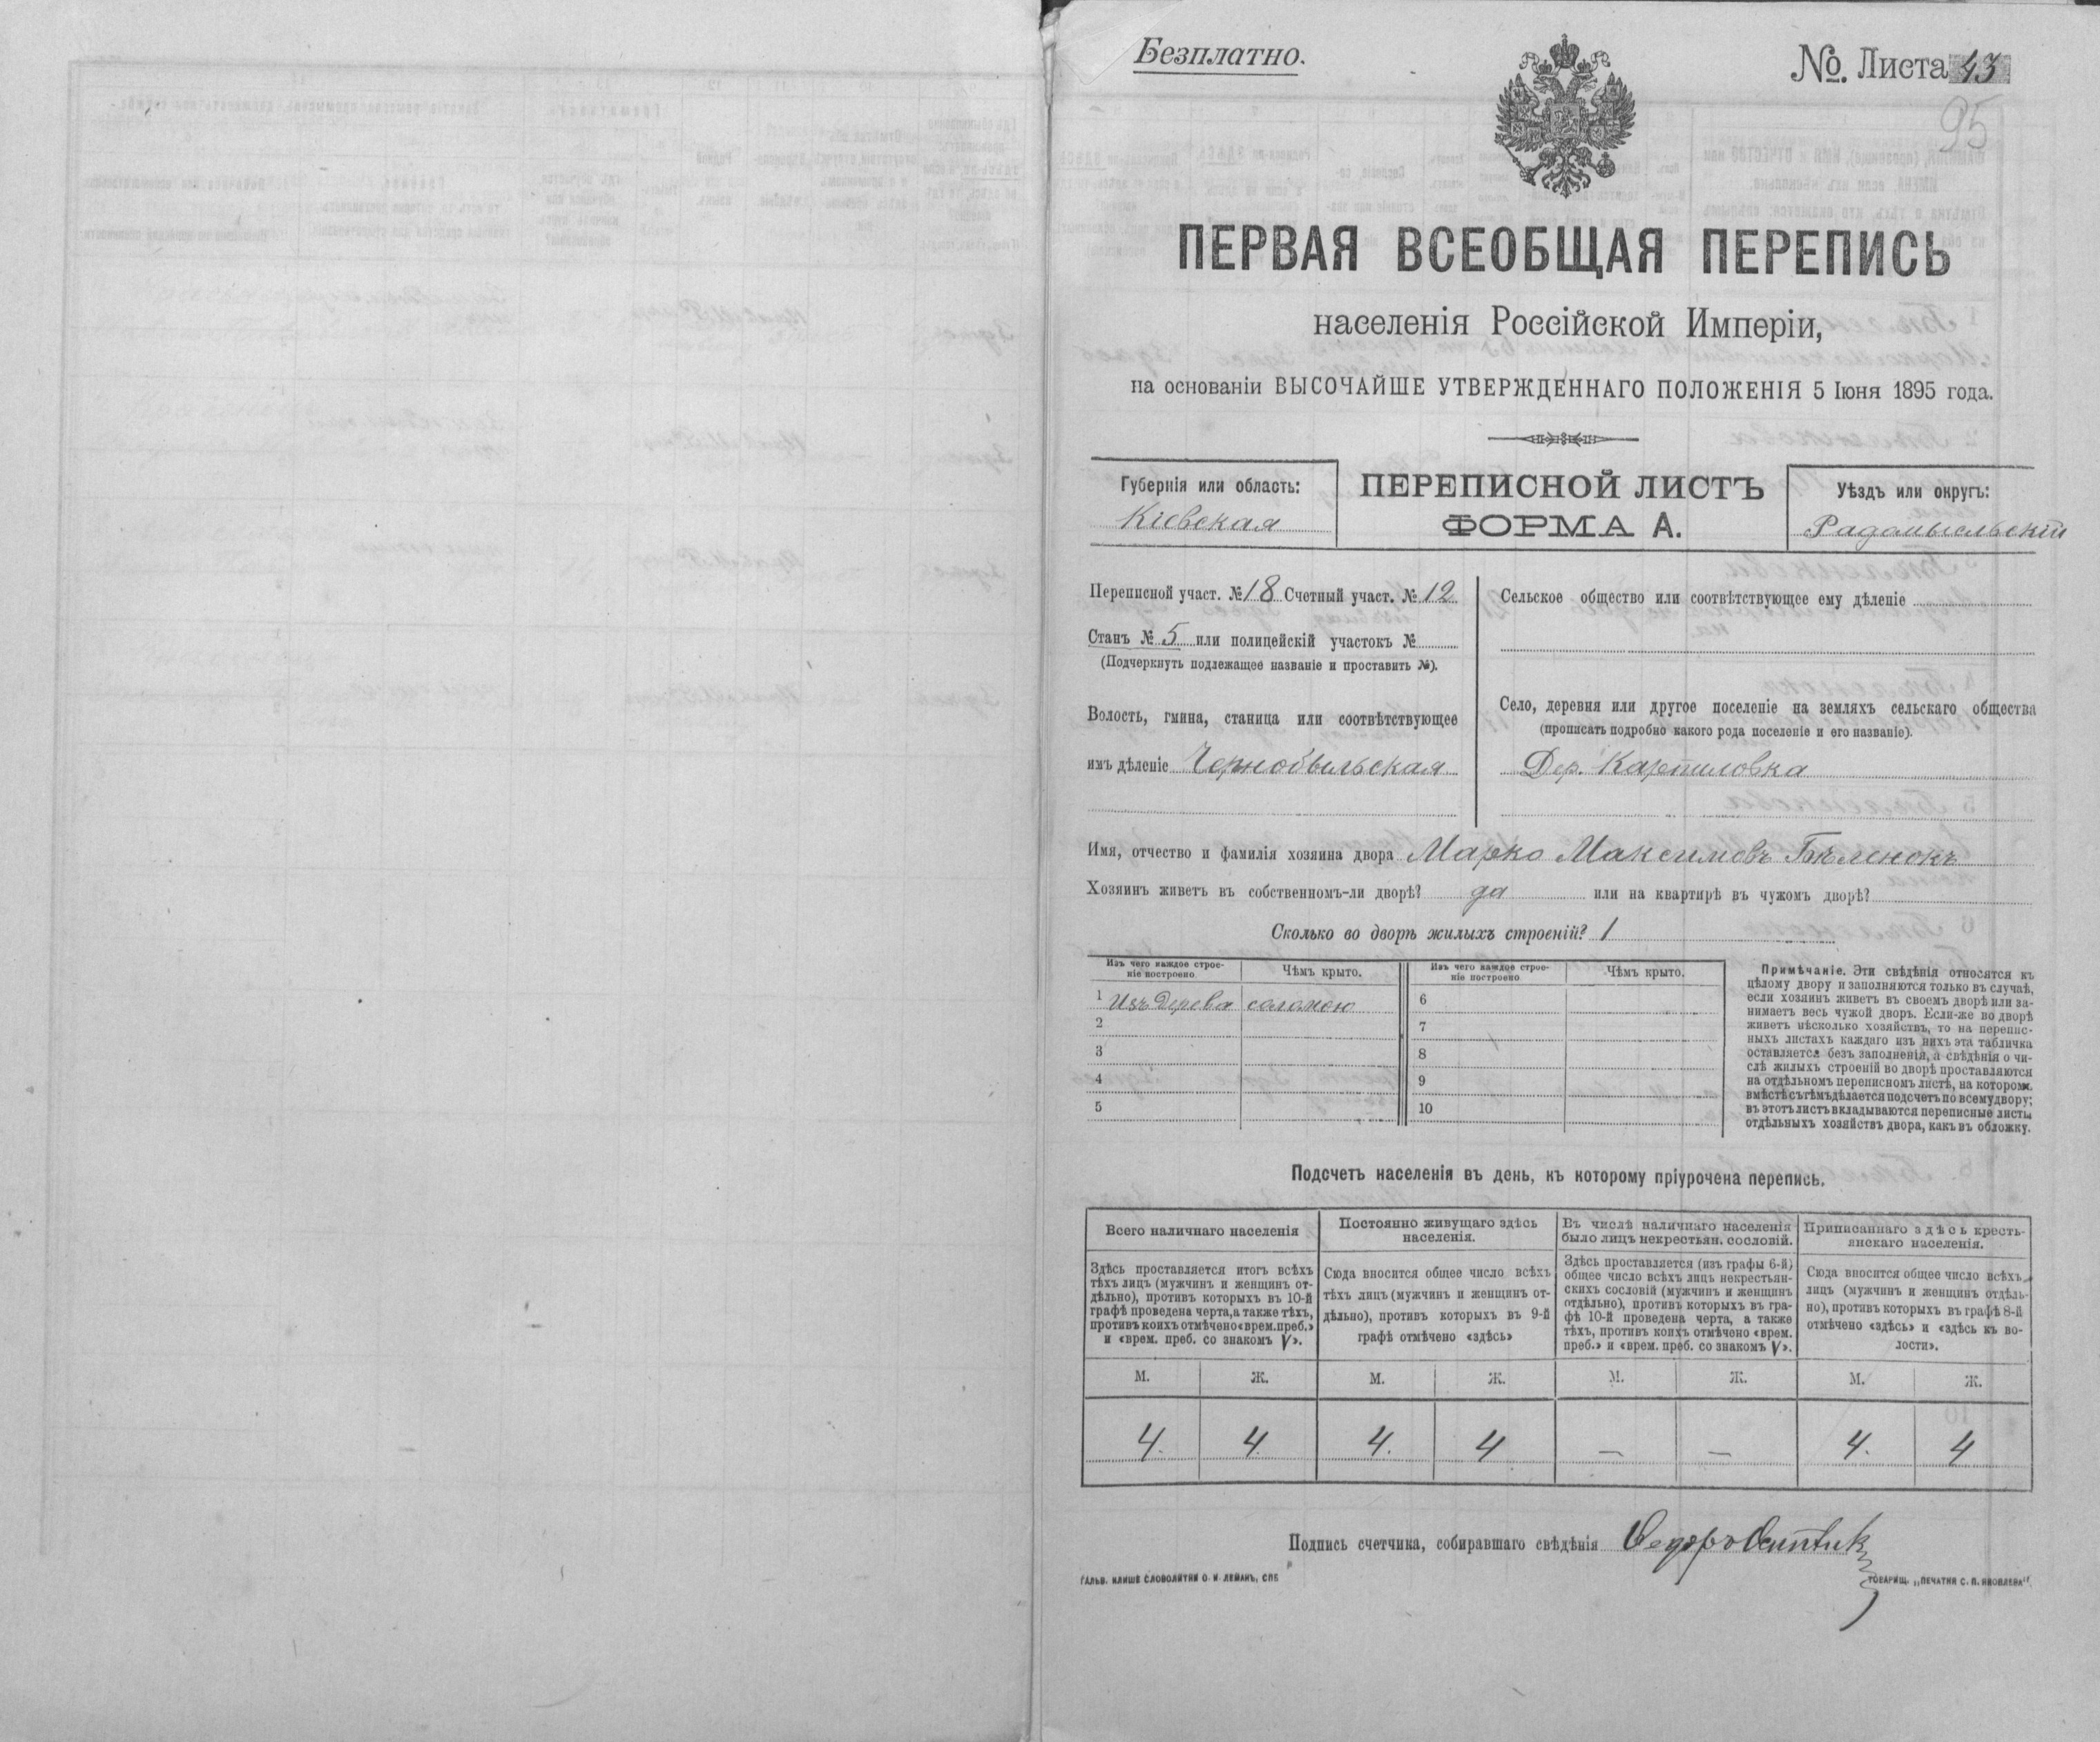 Безплатно.
№ Листа 43
95
ПЕРВАЯ ВСЕОБЩАЯ ПЕРЕПИСЬ
населенія Россійской Имперіи,
на основаніи ВЫСОЧАЙШЕ УТВЕРЖДЕННАГО ПОЛОЖЕНІЯ 5 Іюня 1895 года.
Губернія или область:
Кіевская
ПЕРЕПИСНОЙ ЛИСТЪ
ФОРМА А.
Уѣздъ или округъ:
Радомысльскій
Переписной участ. № 18 Счетный участ. № 12
Станъ № 5 или полицейскій участокъ №
(Подчеркнуть подлежащее названіе и проставить №).
Волость, гмина, станица или соотвѣтствующее
имъ дѣленіе Чернобыльская
Сельское общество или соотвѣтствующее ему дѣленіе
Село, деревня или другое поселеніе на земляхъ сельскаго общества
(прописать подробно какого рода поселеніе и его названіе).
Дер. Карпиловка
Имя, отчество и фамилія хозяина двора Марко Максимовъ Бѣленокъ
Хозяинъ живетъ въ собственномъ-ли дворѣ? да или на квартирѣ въ чужомъ дворѣ?
Сколько во дворѣ жилыхъ строеній? 1
Изъ чего каждое строе-
ніе построено
Чѣмъ крыто.
Изъ чего каждое строе-
ніе построено
Чѣмъ крыто.
1 Изъ дерева соломою
2
3
4
5
6
7
8
9
10
Примѣчаніе. Эти свѣдѣнія относятся къ
цѣлому двору и заполняются только въ случаѣ,
если хозяинъ живетъ въ своемъ дворѣ или за-
нимаетъ весь чужой дворъ. Если-же во дворѣ
живетъ нѣсколько хозяйствъ, то на перепис-
ныхъ листахъ каждаго изъ нихъ эта табличка
оставляется безъ заполненія, а свѣдѣнія о чи-
слѣ жилыхъ строеній во дворѣ проставляются
на отдѣльномъ переписномъ листѣ, на которомъ
вмѣстѣ съ тѣмъ дѣлается подсчетъ по всему двору;
въ этотъ листъ вкладываются переписные листы
отдѣльныхъ хозяйствъ двора, какъ въ обложку.
Подсчетъ населенія въ день, къ которому пріурочена перепись.
Всего наличнаго населенія
Здѣсь проставляется итогъ всѣхъ
тѣхъ лицъ (мужчинъ и женщинъ от-
дѣльно), противъ которыхъ въ 10-й
графѣ проведена черта, а также тѣхъ,
противъ коихъ отмѣчено «врем. преб.»
и «врем. преб. со знакомъ V».
Постоянно живущаго здѣсь
населенія.
Сюда вносится общее число всѣхъ
тѣхъ лицъ (мужчинъ и женщинъ от-
дѣльно), противъ которыхъ въ 9-й
графѣ отмѣчено «здѣсь»
Въ числѣ наличнаго населенія
было лицъ некрестьян. сословій.
Здѣсь проставляется (изъ графы 6-й)
общее число всѣхъ лицъ некрестьян-
скихъ сословій (мужчинъ и женщинъ
отдѣльно), противъ которыхъ въ гра-
фѣ 10-й проведена черта, а также
тѣхъ, противъ коихъ отмѣчено «врем.
преб.» и «врем. преб. со знакомъ V».
Приписаннаго здѣсь кресть-
янскаго населенія.
Сюда вносится общее число всѣхъ
лицъ (мужчинъ и женщинъ отдѣль-
но), противъ которыхъ въ графѣ 8-й
отмѣчено «здѣсь» и «здѣсь къ во-
лости».
М. Ж. М. Ж. М. Ж. М. Ж.
4. 4 4. 4 — — 4. 4
Подпись счетчика, собиравшаго свѣдѣнія Ѳедоръ
ГАЛЬВ. КЛИШЕ СЛОВОЛИТНИ О. И. ЛЕМАНЪ, СПБ
ТОВАРИЩ. „ПЕЧАТНЯ С. П. ЯКОВЛЕВА"